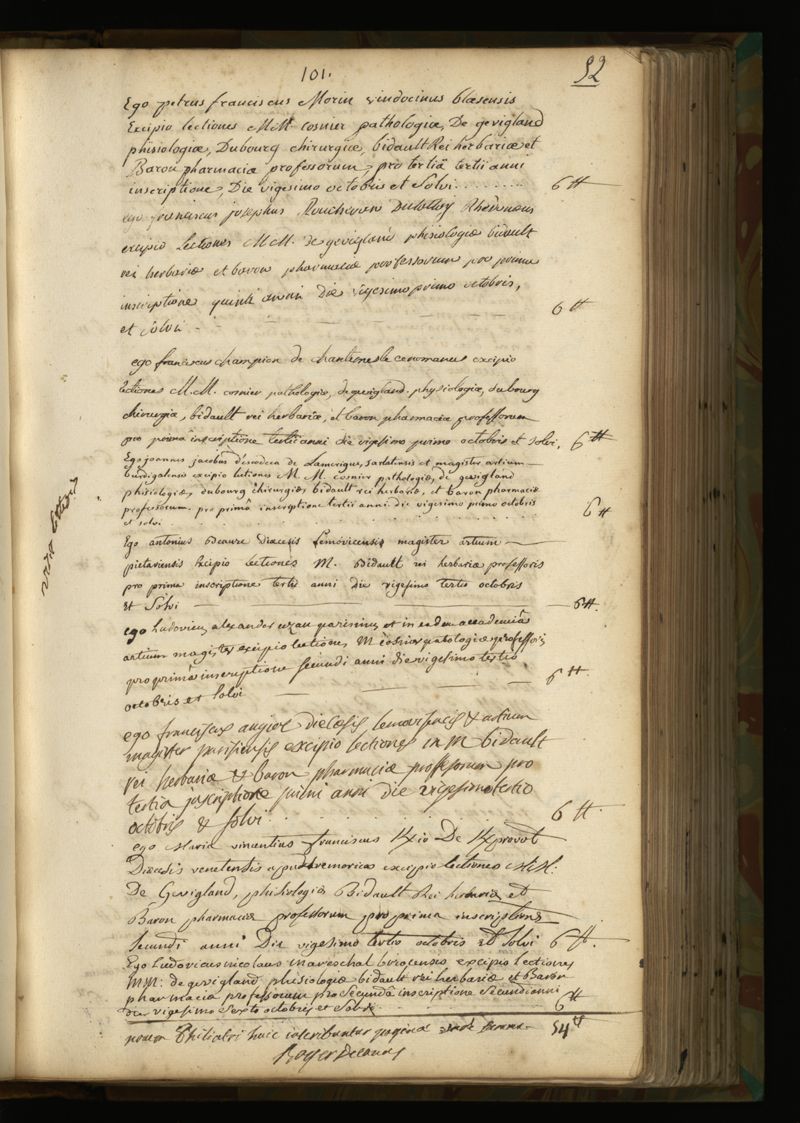 101.
52
Ego petrus franciscus Morin vindocinus blaesensis
Excipio lectiones M.M. cosnier pathologiæ, De gevigland
phisiologiæ, Dubourg chirurgiæ, bidault Rei herbariæ et
Baron pharmaciæ professorum, pro tertiâ tertii anni
inscriptione, Die vigesimo octobris et Solvi 6 tt
ego franciscus josephus Dulattay Rhedonæus
excipio Lectiones M.M. de gevigland phisiologiæ bidault
rei herbariæ et baron pharmaciæ professorum pro prima
inscriptione quinti anni Die vigesimo primo octobris,
et solvi 6 tt
ego franciscus champion de chantesnele cenomanus excipio
lectiones M.M. cosnier pathologiæ, de gevigland physiologiæ, dubourg
chirurgiæ, bidault rei herbariæ, et baron pharmaciæ professorum
pro primâ inscriptione tertii anni die vigesimo primo octobris et solvi, 6 tt
Ego joannes jacobus de Lamerigue, sarlatensis et magister artium
burdigalensis excipio lectiones M. M. cosnier pathologiæ, de gevigland
phisiologiæ, dubourg chirurgiæ, bidault rei herbariæ, et baron pharmaciæ
professorum. pro primâ inscriptione tertii anni die vigesimo primo octobris
et solvi 6 tt
Ego antonius diœcesis Lemovicensis magister artium
pictaviensis Excipio Lectiones M. Bidault rei herbariæ professoris
pro prima inscriptione tertii anni die vigesimo tertio octobris
et Solvi 6 tt.
ego Ludovicus alexander parisinus et in eadem accademiâ
artium magister excipio lectiones M cosnier patologiæ professoris
pro primâ inscriptione secundi anni die vigesimo tertio
octobris et solvi 6 tt
ego franciscus augior diœcesis lemovicensis & artium
magister parisiensis excipio lectiones m M bidault
rei herbariæ & baron pharmaciæ professorum pro
tertia inscriptione primi anni die vigesimo tertio
octobris & solvi 6 tt.
ego Maria vincentius franciscus De
Diœcesis venetensis apud Aremoricas excipio lectiones M.M.
De Gevigland, phisiologiæ Bidault Rei herbariæ et
Baron pharmaciæ professorum pro prima inscriptione
secundi anni Die vigesimo tertio octobris et solvi 6 tt.
Ego Ludovicus nicolaus mareschal excipio lectiones
MM: de gevigland phisiologiæ bidault rei herbariæ et Baron
pharmaciæ professorum pro secunda inscriptione secundi anni
die vigesimo sexto octobris et solvi 6 tt
novem Philiatri huic inscribuntur paginæ 54 tt